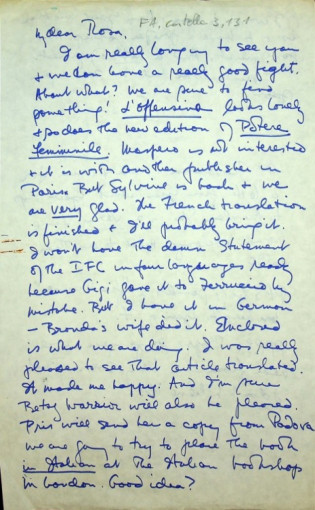 FA, cartella 3, 131
My dear Rosa,
I am really longing to see you
& we can have a really good fight.
About what? We are sure to find
something! L'Offensiva looks lovely
& so does the new edition of Potere
Femminile. Maspero is not interested
& it is with another publisher in
Paris. But Sylvine is back & we
are very glad. The French translation
is finished & I'll probably bring it.
I won't have the damn Statement
of the IFC in four languages ready
because Gigi gave it to Ferruccio by
mistake. But I have it in German
– wife did it. Enclosed
is what we are doing. I was really
pleased to see that article translated.
It made me happy. And I'm sure
Betsy Warrior will also be pleased.
Pris will send her a copy from Padova
we are going to try to place the book
in Italian at the Italian bookshop
in London. Good idea?